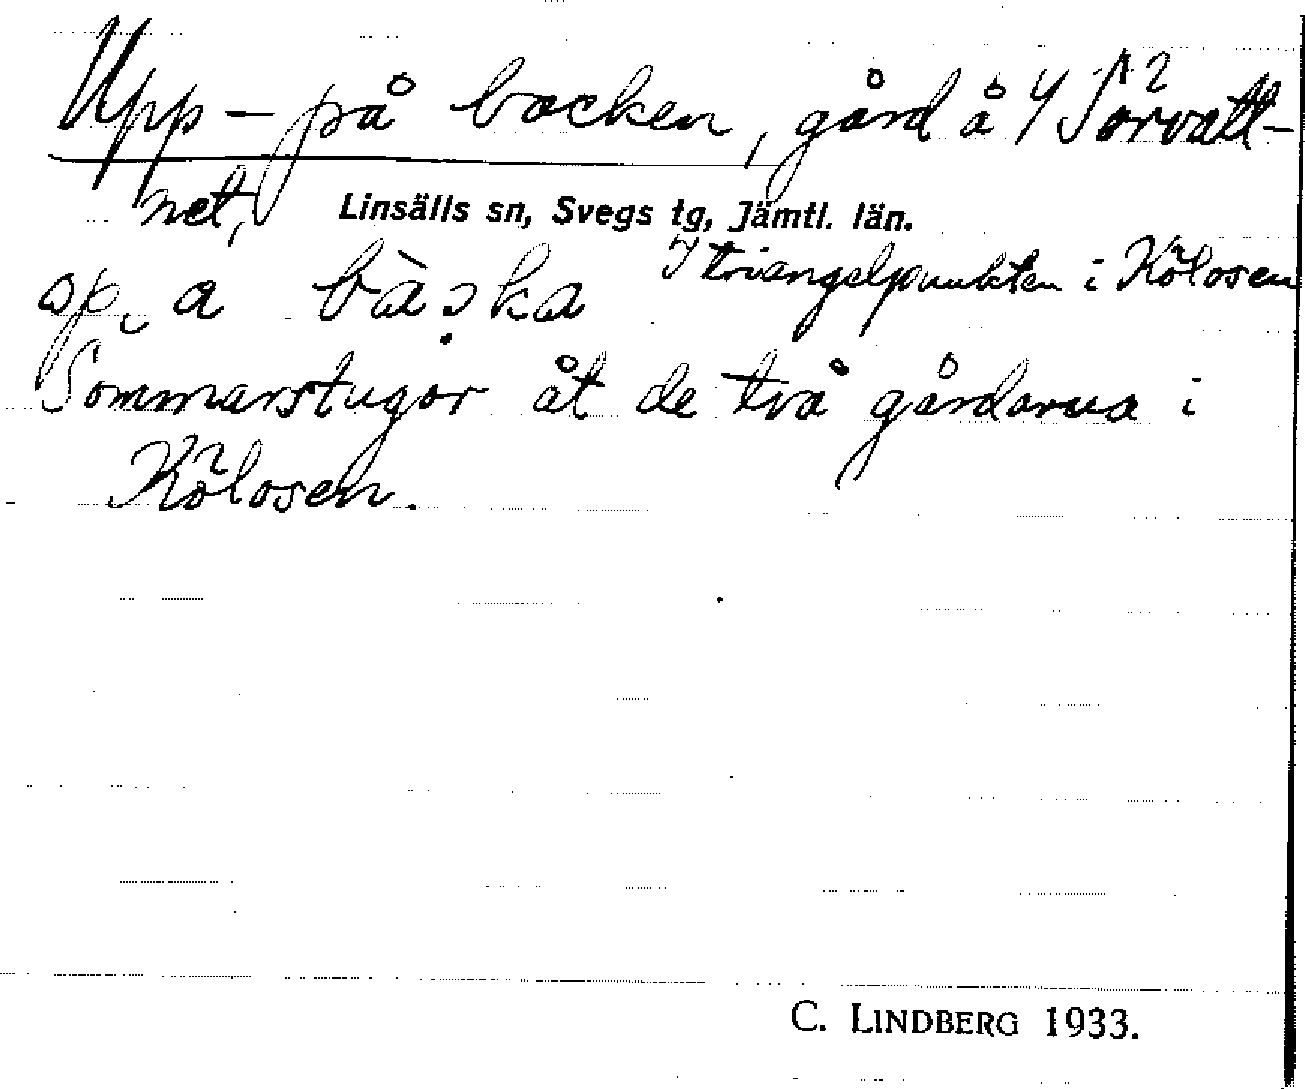 Upp-på backen, gård å 4 Sörvatt-
net,
Linsälls sn, Svegs tg, Jämtl. län.
triangelpunkten i Kölosen
a bàska
Sommarstugor åt de två gårdarna i
Kölosen.
C. LINDBERG 1933.